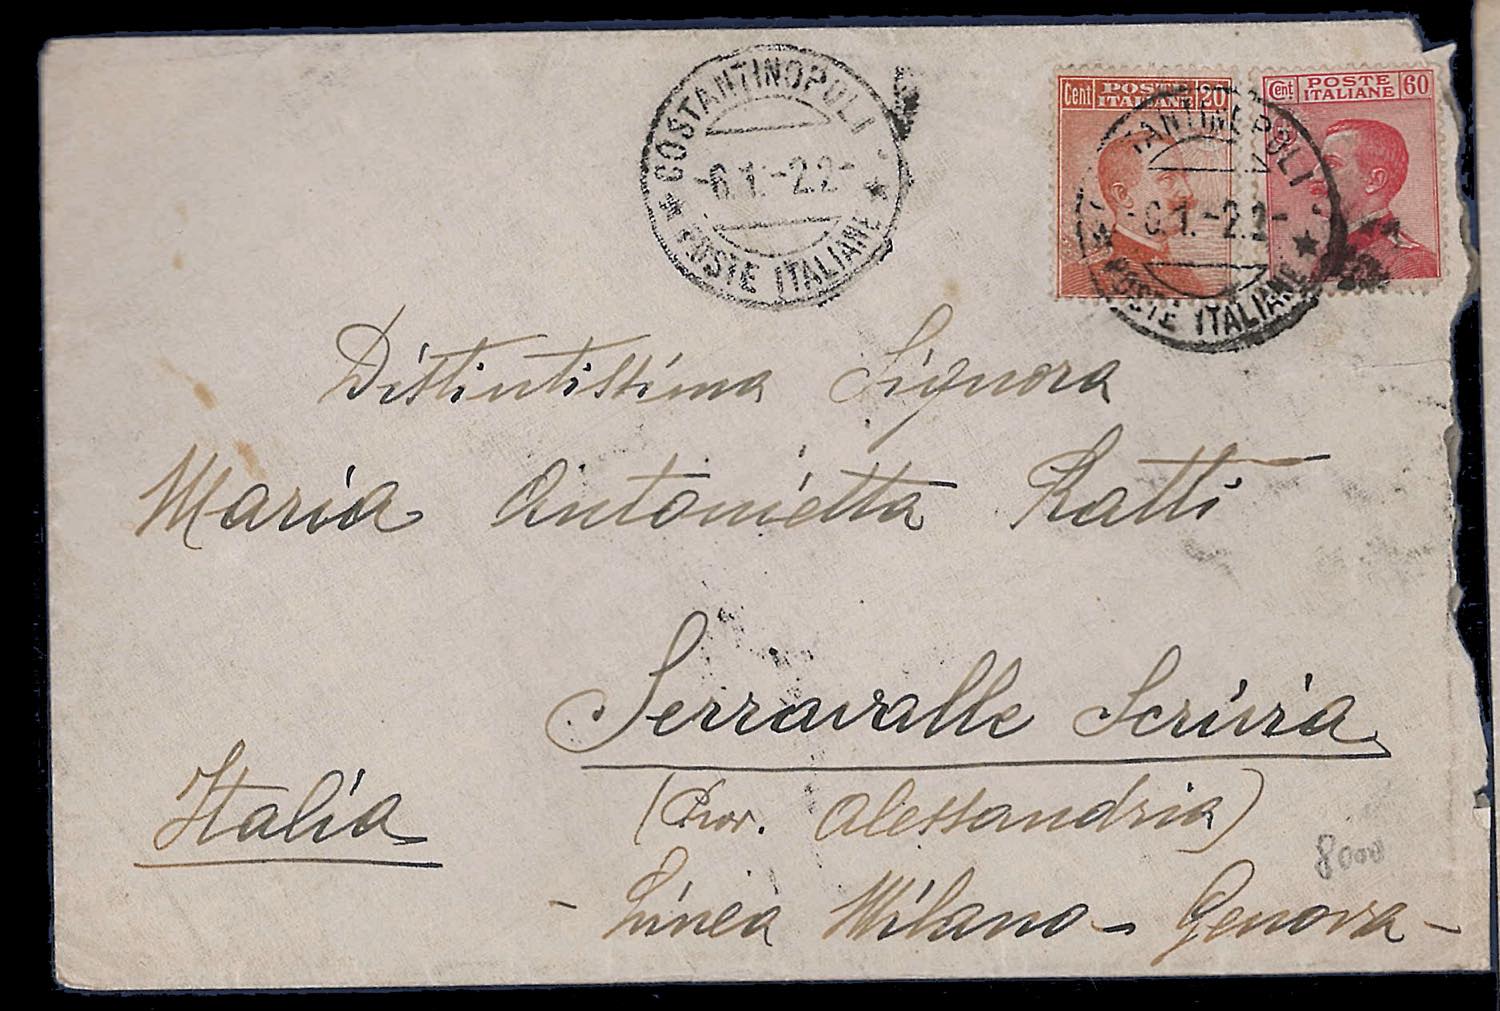 COSTANTINOPOLI
-6.1.-22-
POSTE ITALIANE
Cent POSTE ITALIANE 20
Cent POSTE ITALIANE 60
TANTINOPOLI
-6.1.-22-
POSTE ITALIANE
Distintissima Signora
Maria Antonietta Ratti
Serravalle Scrivia
Italia
(Prov. Alessandria)
8000
- Linea Milano - Genova -